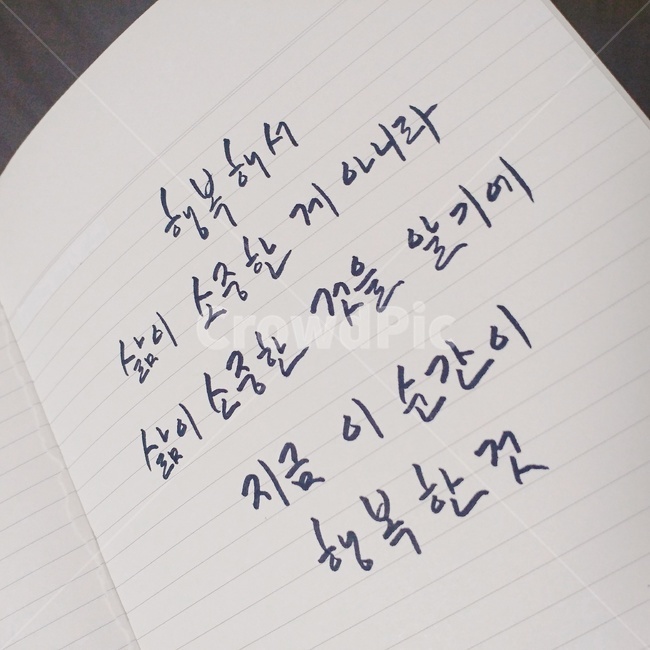 행복해서
삶이 소중한 게 아니라
삶이 소중한 것을 알기에
지금 이 순간이
행복한 것
CrowdPic